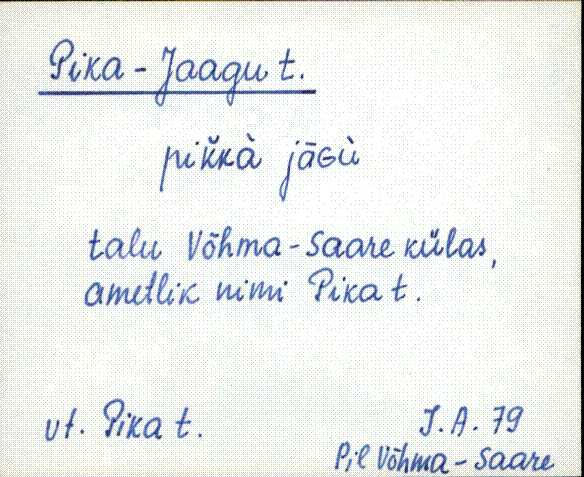 Pika-Jaagu t.
pik̆kà jāGù
talu Võhma-Saare külas,
ametlik nimi Pika t.
vt. Pika t.
J.A. 79
Pil Võhma-Saare